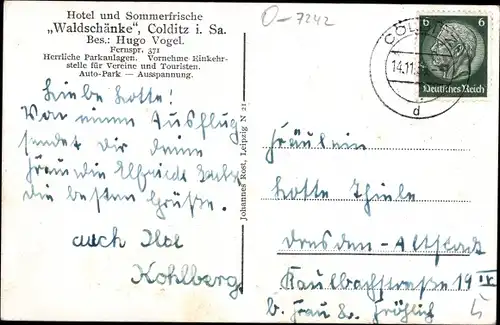 Hotel und Sommerfrische
„Waldschänke", Colditz i. Sa.
Bes.: Hugo Vogel.
Fernspr. 371
Herrliche Parkanlagen. Vornehme Einkehr-
stelle für Vereine und Touristen.
Auto-Park — Ausspannung.
O-7242
COLDITZ
14.11.
d
6 6
Deutsches Reich
Liebe Lotte!
Von einem Ausflug
sendet dir deine
Freundin Elfriede
die besten Grüße.
auch Ilse
Kohlberg.
Johannes Rost, Leipzig N 21
Fräulein
Lotte Thiele
Dresden-Altstadt
Kaulbachstraße 19 IV.
b. Frau Dr. Fröhlich